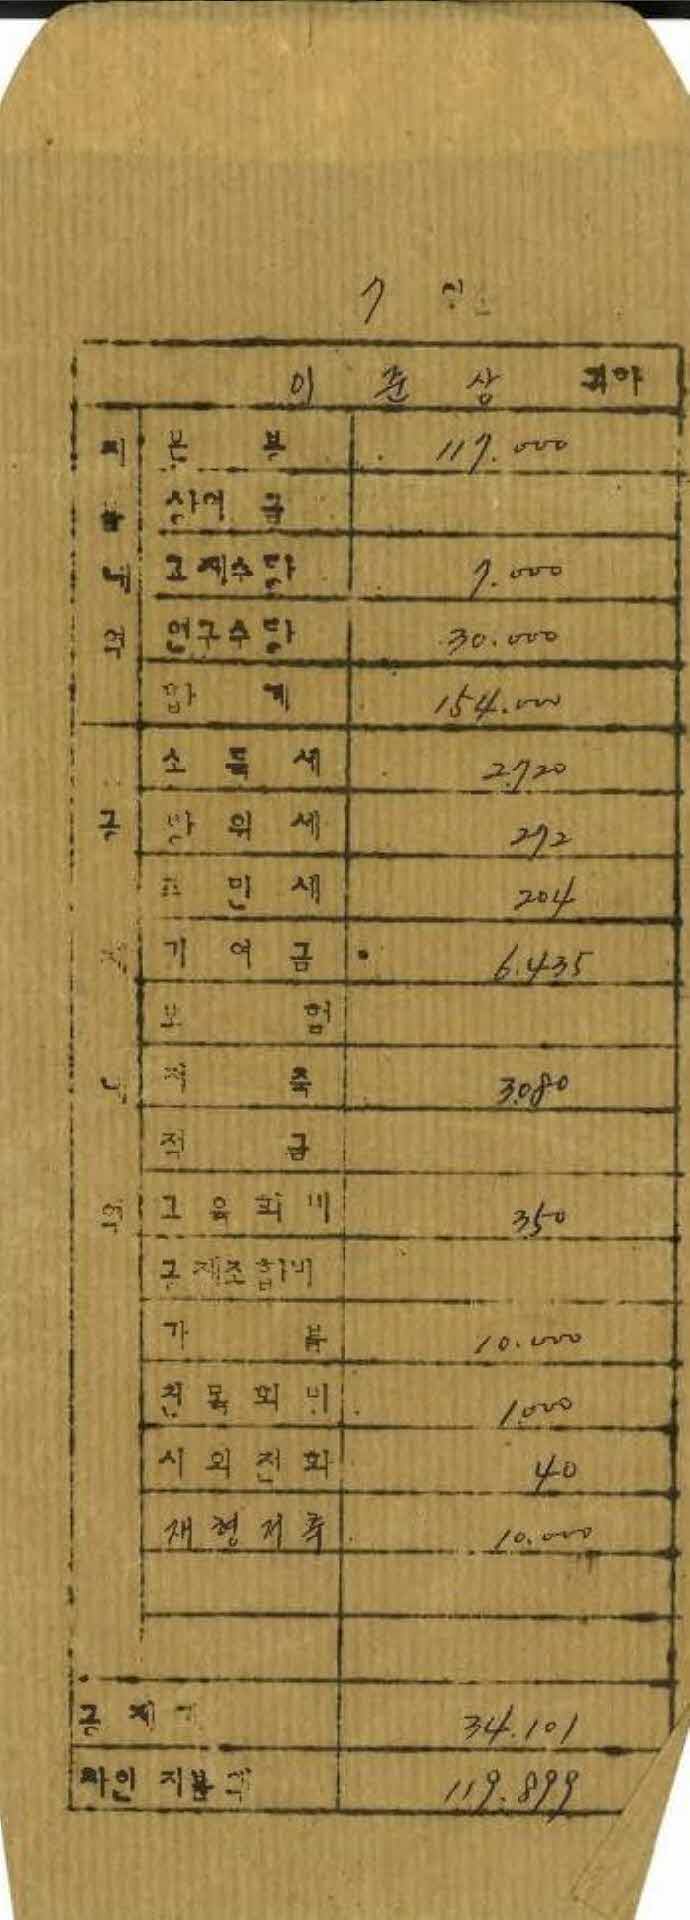 7
이 준 상 귀하
지불내역
본 봉 117.000
상여금
교재수당 7.000
연구수당 30.000
합 계 154.000
공제내역
소득세 2.720
방위세 272
주민세 204
기여금 6.435
보험
저축 3.080
적금
교육회비 350
공제조합비
가불 10.000
친목회비 1.000
시외전화 40
재형저축 10.000
공제계 34.101
차인지불액 119.899